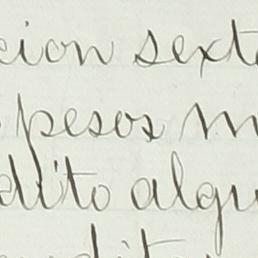 cion sexta
pesos m
dito algu